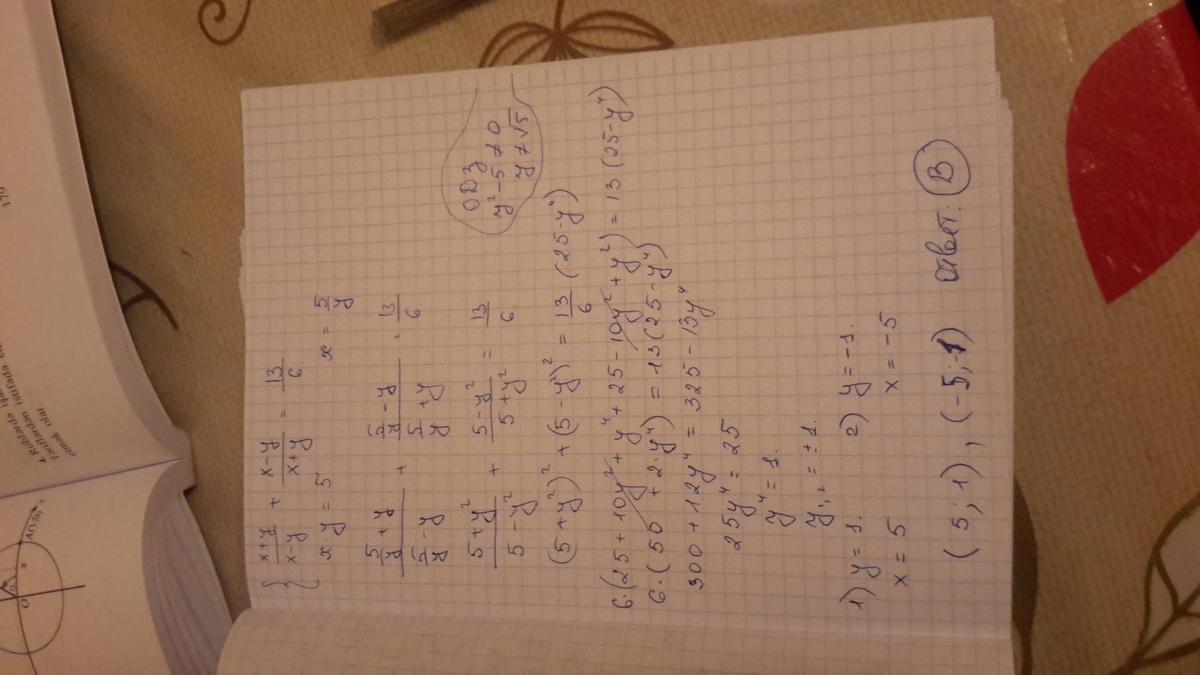 { (x+y)/(x-y) + (x-y)/(x+y) = 13/6
x·y = 5 x = 5/y
(5/y + y)/(5/y - y) + (5/y - y)/(5/y + y) = 13/6.
(5+y²)/(5-y²) + (5-y²)/(5+y²) = 13/6.
ОДЗ
y²-5≠0
y≠√5
(5+y²)² + (5-y²)² = 13/6 (25-y⁴)
6·(25+10y²+y⁴+25-10y²+y²) = 13(25-y⁴)
6·(50 + 2·y⁴) = 13(25-y⁴)
300 + 12y⁴ = 325 - 13y⁴
25y⁴ = 25
y⁴ = 1.
y₁,₂ = ±1.
1) y = 1. 2) y = -1.
x = 5 x = -5
(5;1), (-5;-1) Ответ: B
179
4. Rüblərdə
etmək olar
O
x